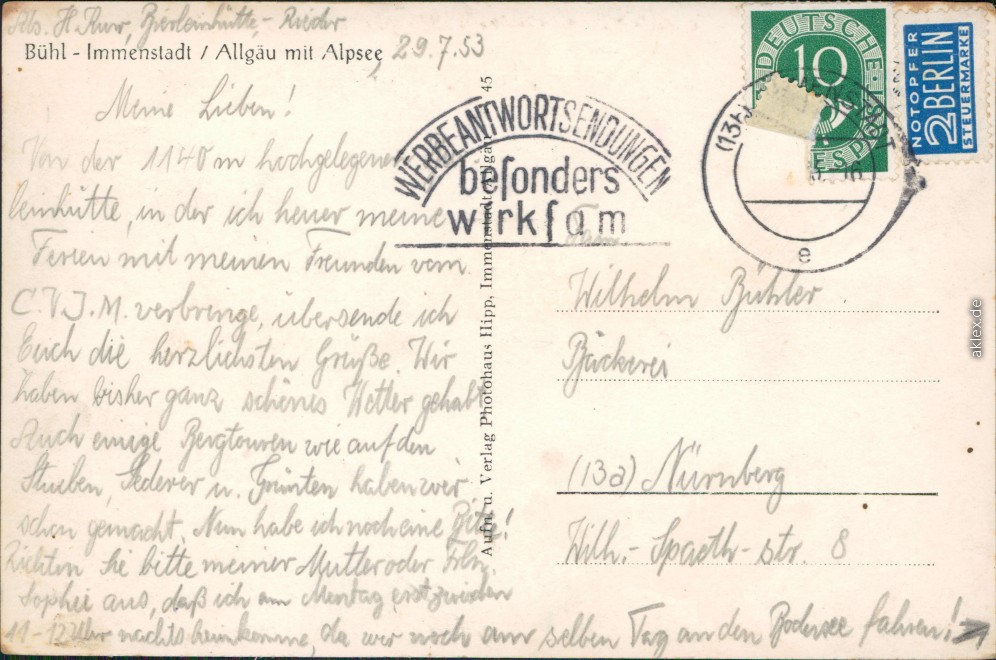 Abs. H. Kurr, Bierleinhütte - Rieder
Bühl - Immenstadt / Allgäu mit Alpsee
, 29.7.53
Meine Lieben!
Von der 1140 m hochgelegenen
leinhütte, in der ich heuer meine
Ferien mit meinen Freunden vom
C.V.J.M. verbringe, übersende ich
Euch die herzlichsten Grüße. Wir
haben bisher ganz schönes Wetter gehabt
Auch einige Bergtouren wie auf den
Stuiben, Sederer u. Grünten haben wir
schon gemacht. Nun habe ich noch eine Bitte!
Richten Sie bitte meiner Mutter oder Frln.
Sophie aus, daß ich am Montag erst zwischen
11-12 Uhr nachts heimkomme, da wir noch am selben Tag an den Bodensee fahren!
Aufn. u. Verlag Photohaus Hipp, Immenstadt/Allgäu 45
WERBEANTWORTSENDUNGEN
beſonders
wirkſam
DEUTSCHE
10
NOTOPFER
2 BERLIN
STEUERMARKE
(13b)
e
Fam.
Wilhelm Bühler
Bäckerei
(13a) Nürnberg
Wilh.- Spaeth-str. 8
aklex.de